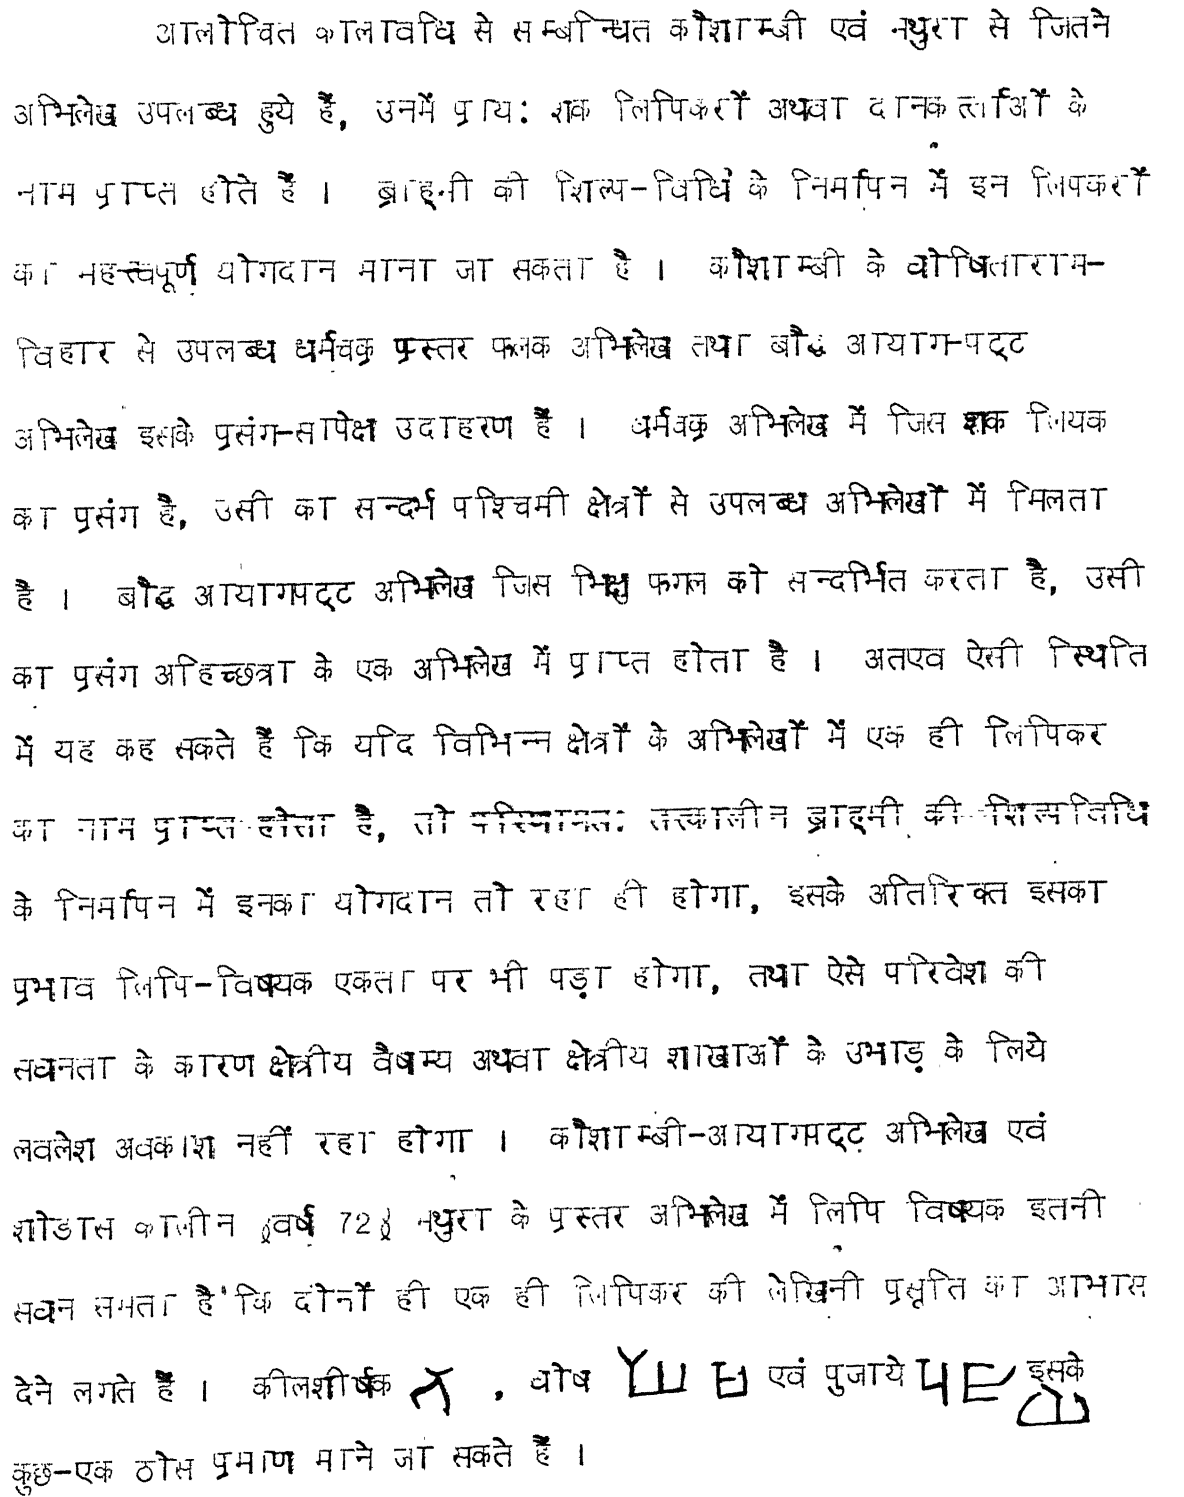 आलोचित कालावधि से सम्बन्धित कौशाम्बी एवं मथुरा से जितने
अभिलेख उपलब्ध हुये हैं, उनमें प्राय: शक लिपिकरों अथवा दानकर्त्ताओं के
नाम प्राप्त होते हैं । ब्राह्मी की शिल्प-विधि के निर्मापन में इन लिपकरों
का महत्त्वपूर्ण योगदान माना जा सकता है । कौशाम्बी के घोषिताराम-
विहार से उपलब्ध धर्मचक्र प्रस्तर फलक अभिलेख तथा बौद्ध आयाग-पट्ट
अभिलेख इसके प्रसंग-सापेक्ष उदाहरण हैं । धर्मचक्र अभिलेख में जिस शक लियक
का प्रसंग है, उसी का सन्दर्भ पश्चिमी क्षेत्रों से उपलब्ध अभिलेखों में मिलता
है । बौद्ध आयागपट्ट अभिलेख जिस भिक्षु फगल को सन्दर्भित करता है, उसी
का प्रसंग अहिच्छत्रा के एक अभिलेख में प्राप्त होता है । अतएव ऐसी स्थिति
में यह कह सकते हैं कि यदि विभिन्न क्षेत्रों के अभिलेखों में एक ही लिपिकर
का नाम प्राप्त होता है, तो परिणामत: तत्कालीन ब्राह्मी की शिल्पविधि
के निर्मापन में इनका योगदान तो रहा ही होगा, इसके अतिरिक्त इसका
प्रभाव लिपि-विषयक एकता पर भी पड़ा होगा, तथा ऐसे परिवेश की
सघनता के कारण क्षेत्रीय वैषम्य अथवा क्षेत्रीय शाखाओं के उभाड़ के लिये
लवलेश अवकाश नहीं रहा होगा । कौशाम्बी-आयागपट्ट अभिलेख एवं
शोडास कालीन (वर्ष 72) मथुरा के प्रस्तर अभिलेख में लिपि विषयक इतनी
सघन समता है कि दोनों ही एक ही लिपिकर की लेखिनी प्रसूति का आभास
देने लगते हैं । कीलशीर्षक , घोष एवं पुजाये इसके
कुछ-एक ठोस प्रमाण माने जा सकते हैं ।